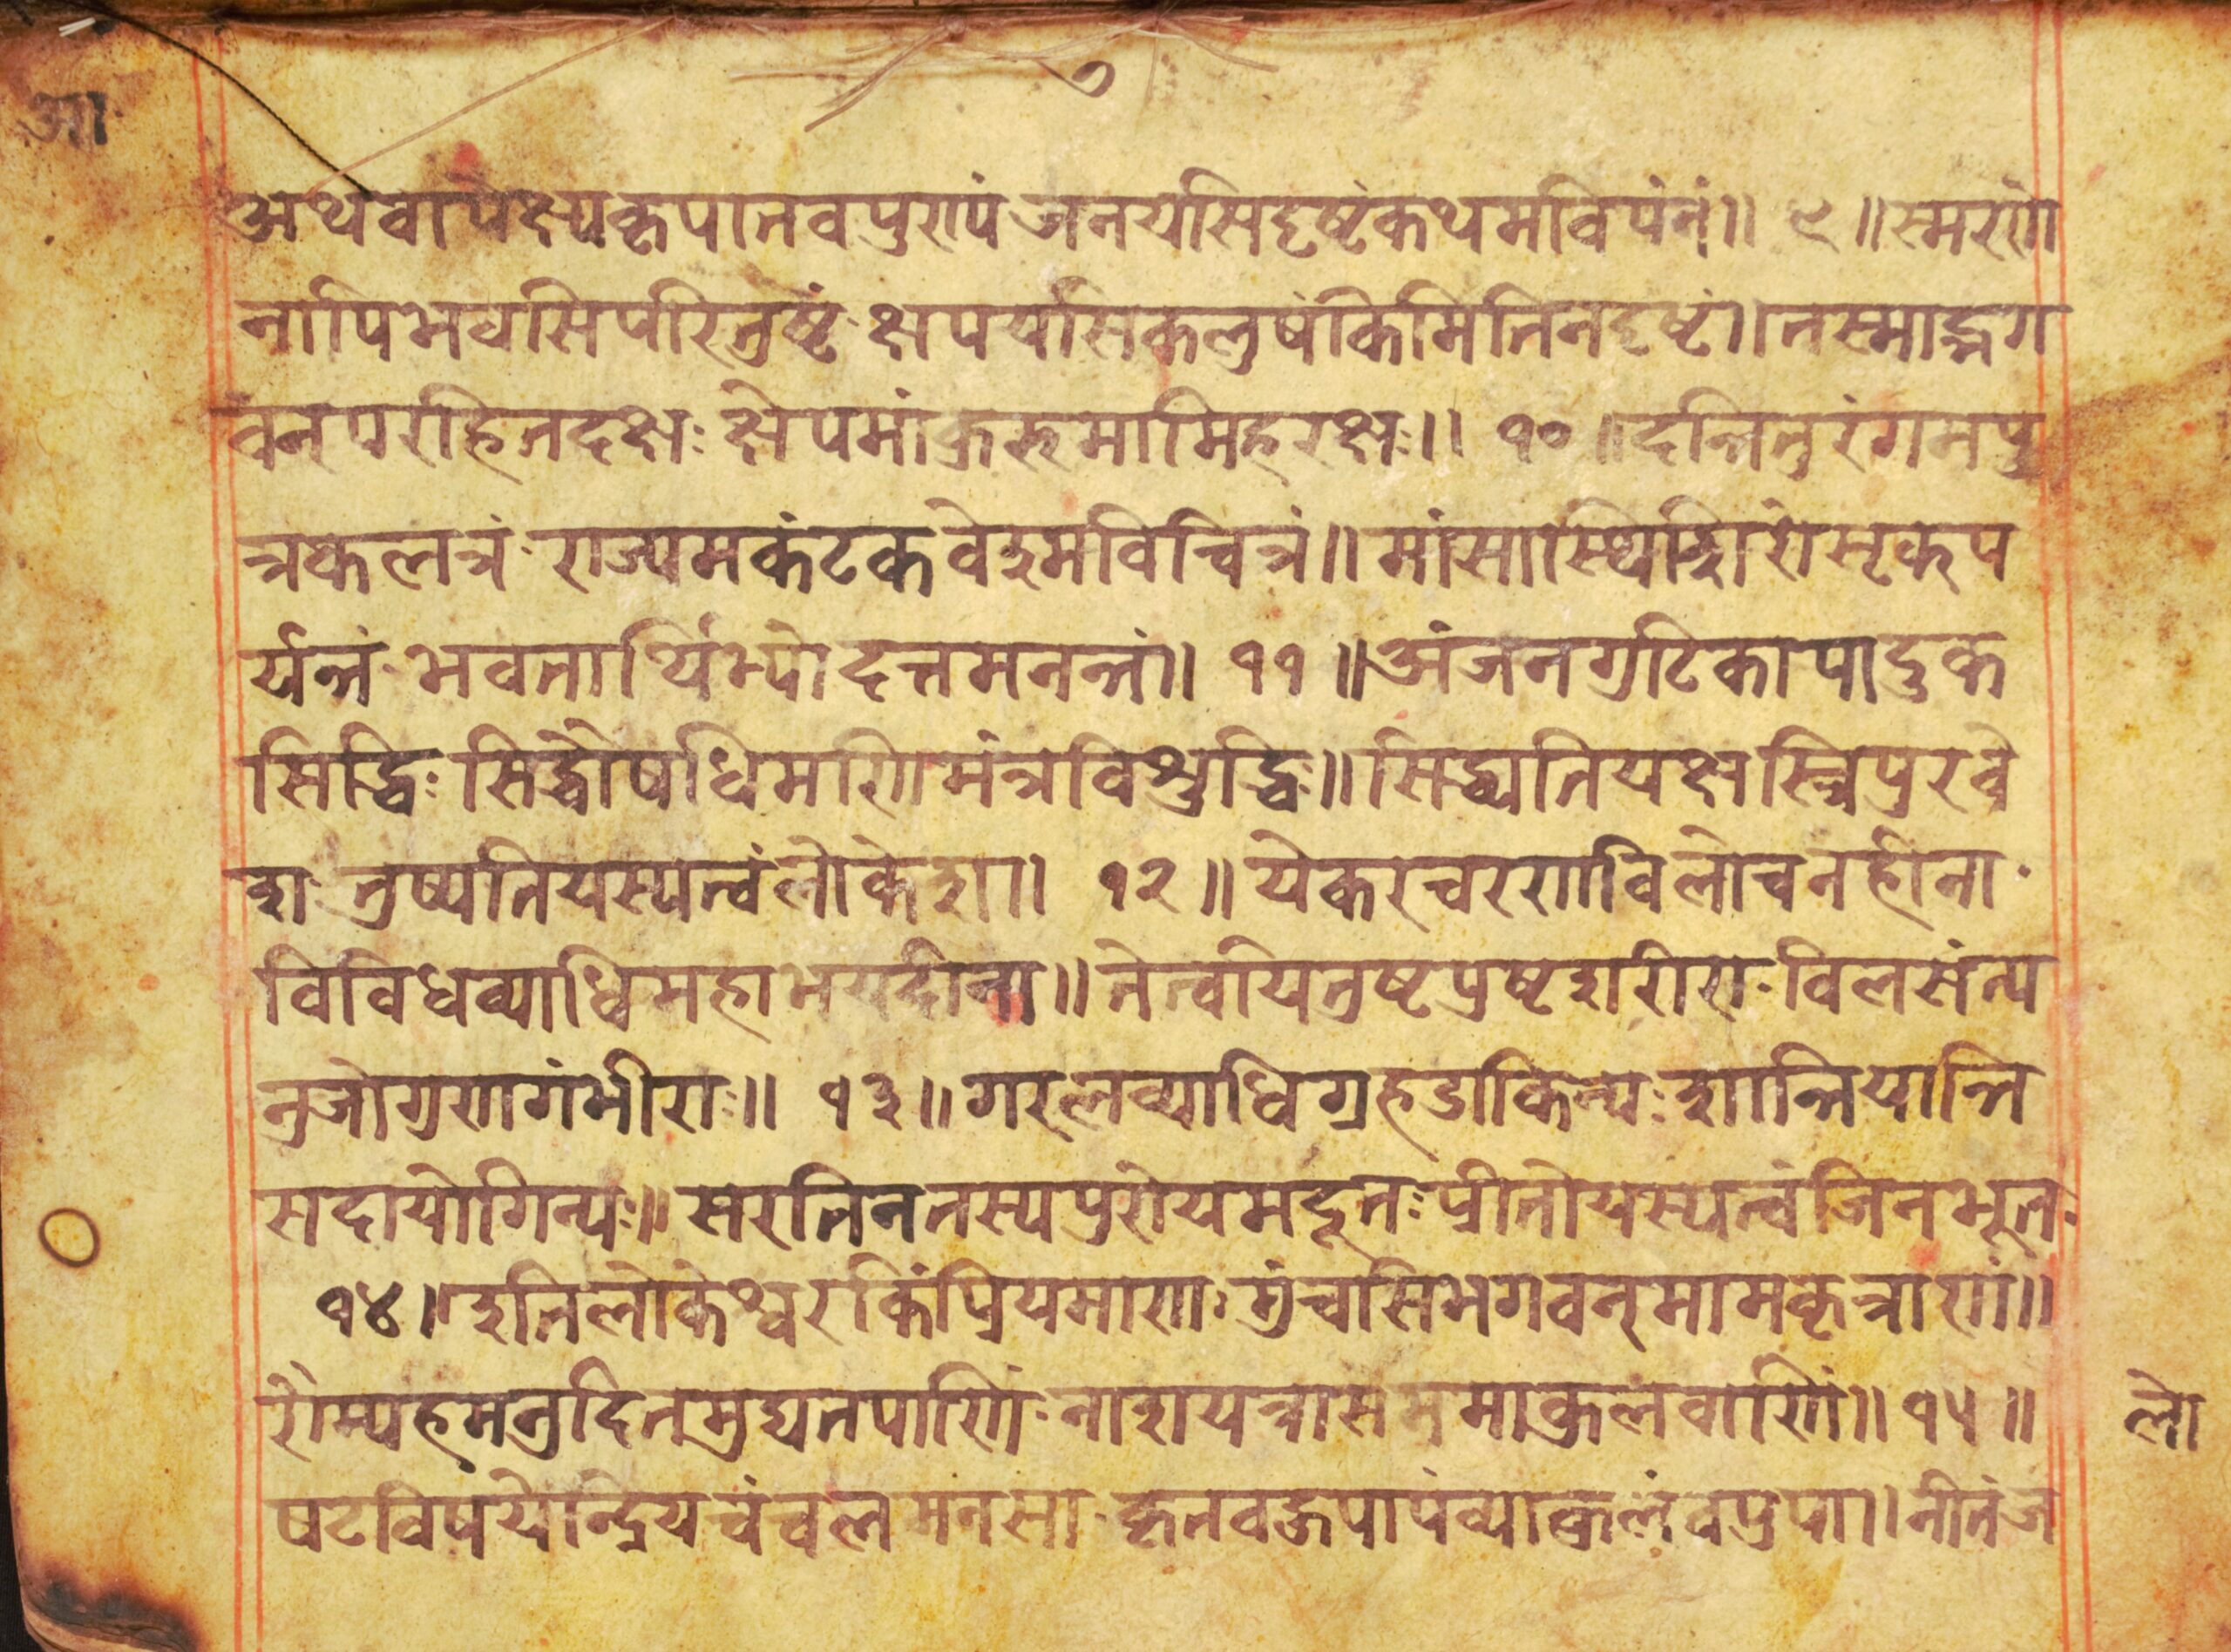 आ
अथवापेक्ष्यकृपातवपुरापं जनयसिदृष्टंकथमविपंनं॥ ९ ॥स्मरणे
नापिभवसिपरितुष्टः क्षपयसिकलुषंकिमितिनदृष्टं॥तस्माद्भग
वन्परहितदक्षः क्षेपमांकुरुमामिहरक्षः॥ १० ॥दन्तितुरंगमपु
त्रकलत्रं राज्यमकंटकवेश्मविचित्रं॥मांसास्थिशिरोसृक्प
र्यन्तं भवतार्थिभ्यो दत्तमनन्तं॥ ११ ॥अंजनगुटिकापादुक
सिद्धिः सिद्धौषधिमणिमंत्रविशुद्धिः॥सिद्ध्यतियक्षस्त्रिपुरवे
शः तुष्यतियस्यत्वंलोकेश॥ १२ ॥ येकरचरणविलोचनहीनाः
विविधव्याधिमहाभयदीना॥तेत्वयितुष्टप्रष्टशरीराः विलसंत्य
नुजोगुणगंभीराः॥ १३ ॥गरलव्याधिग्रहडाकिन्यः शान्तियान्ति
सदायोगिन्यः॥सरतिनतस्यपुरोयमदूतः प्रीतोयस्यत्वंजिनभूतः
१४ ॥इतिलोकेश्वरकिंप्रियमाणः मुंचसिभगवन्मामकृत्राणं॥
रोम्यहमनुदिनमुद्यतपाणिं नाशयत्रासंममाकुलवाणिं॥ १५ ॥
लो
षटविषयेन्द्रियचंचलमनसा कृतवहुपापंव्याकुलंवपुषा॥नीतंज